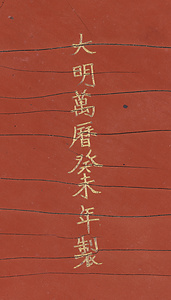 大明萬曆癸未年製